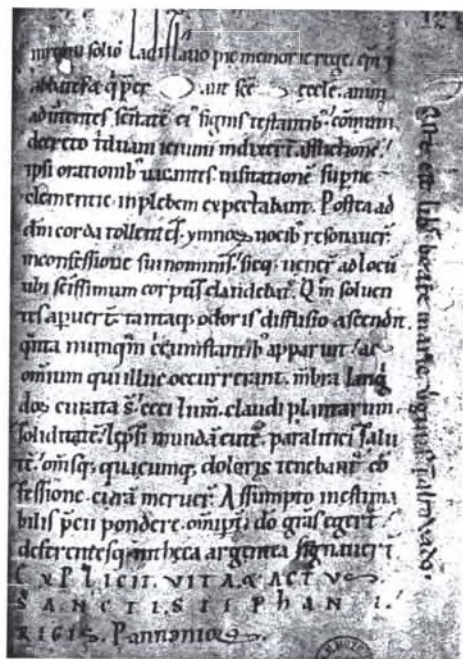 solio ladislao pie memorie rege. epi
abbates q̄ per ecclē.
adinuentes sc̄itatē ei signis testantib; com̄uni
decreto triduani ieiunii indixert̄ afflictionē.
ipsi orationib; uacantes uisitationē supne
clementie in plebem expectabant. Postea ad
dm̄ corda tollentes. ymnos uocib; resonauer̄.
in confessione sui nominis. sicq; uener̄ ad locū
ubi sc̄issimum corpus claudebat̄. Q̄m soluen
tes apuert̄. tantaq; odoris diffusio ascendit.
q̄nta numq̄m c̄cumstantib; apparuit. ac
omnium qui illuc occurrerant. mb̄ra lang
dos curata s̄. ceci lum̄. claudi plantarum
soliditatē. lep̄si mundā cutē. paralitici salu
tē. om̄sq; quicumq; doloris tenebant̄ ob
sessione. curā meruer̄. Assumpto inestima
bilis p̄cii pondere. om̄ipt̄i do gr̄as egert̄.
deferentesq; in theca argentea signauert̄
EXPLICIT. VITA & ACTVS
SANCTI. STEPHANI.
REGIS. Pannonia
Iste est lib̄ beate marie uirginis